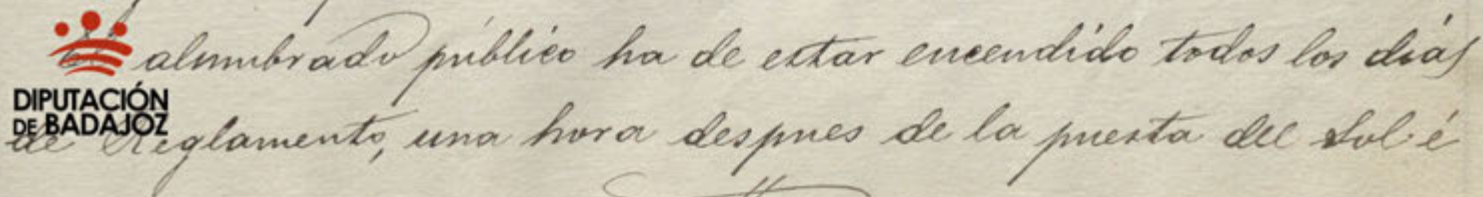 DIPUTACIÓN
DE BADAJOZ
alumbrado público ha de estar encendido todos los días
de Reglamento, una hora despues de la puesta del Sol é